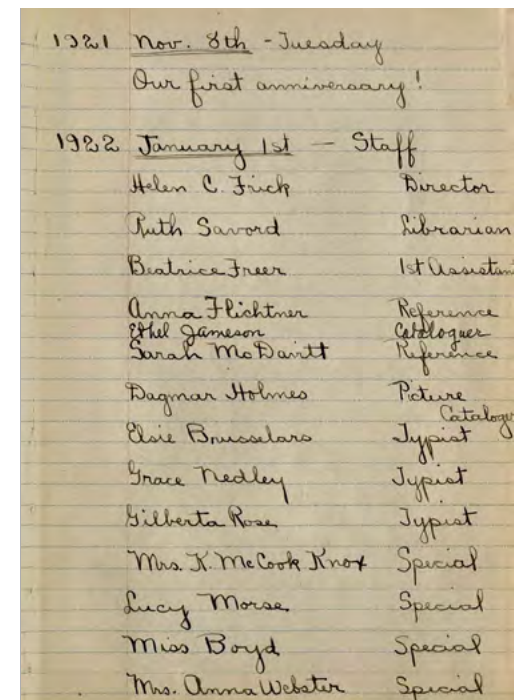 1921 Nov. 8th - Tuesday
Our first anniversary!
1922 January 1st — Staff
Helen C. Frick Director
Ruth Savord Librarian
Beatrice Freer 1st Assistan
Anna Flichtner Reference
Ethel Jameson Cataloguer
Sarah McDavitt Reference
Dagmar Holmes Picture
Catalogu
Elsie Brusselars Typist
Grace Nedley Typist
Gilberta Rose Typist
Mrs. K. McCook Knox Special
Lucy Morse Special
Miss Boyd Special
Mrs. Anna Webster Special